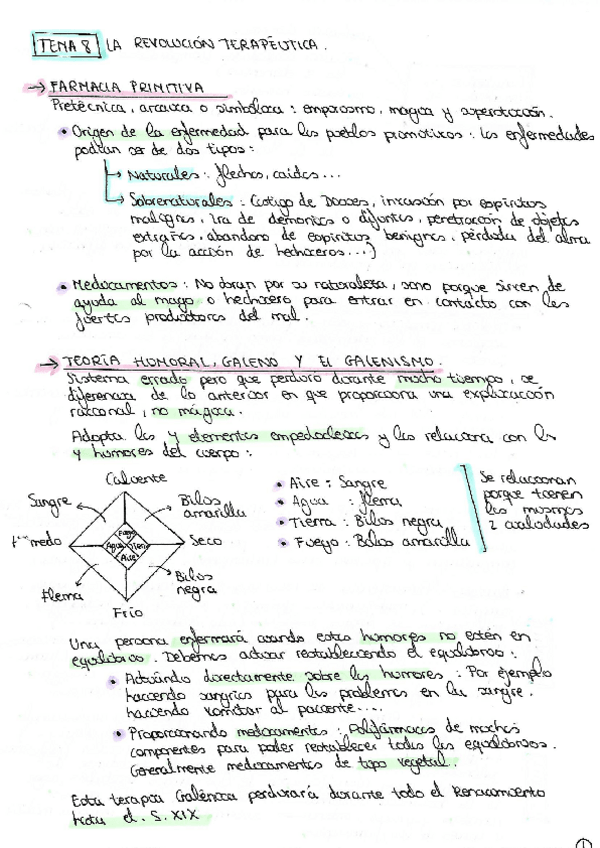 TEMA 8 LA REVOLUCIÓN TERAPÉUTICA.
→ FARMACIA PRIMITIVA
Pretécnica, arcaica o simbólica: empirismo, magia y superstición.
• Origen de la enfermedad para los pueblos primitivos: las enfermedades
podían ser de dos tipos:
→ Naturales: flechas, caídas...
→ Sobrenaturales: Castigo de Dioses, invasión por espíritus
malignos, ira de demonios o difuntos, penetración de objetos
extraños, abandono de espíritus benignos, pérdida del alma
por la acción de hechiceros...)
• Medicamentos: No obran por su naturaleza, sino porque sirven de
ayuda al mago o hechicero para entrar en contacto con las
fuerzas productoras del mal.
→ TEORÍA HUMORAL, GALENO Y EL GALENISMO.
Sistema errado pero que perduró durante mucho tiempo, se
diferencia de lo anterior en que proporciona una explicación
racional, no mágica.
Adopta los 4 elementos empedocleicos y los relaciona con los
4 humores del cuerpo:
Caliente
Sangre
Bilis
amarilla
Fuego
Agua
Tierra
Aire
Seco
Flema
Bilis
negra
Frío
• Aire: Sangre
• Agua: flema
• Tierra: Bilis negra
• Fuego: Bilis amarilla
Se relacionan
porque tienen
las mismas
2 cualidades
Una persona enfermará cuando estos humores no estén en
equilibrio. Debemos actuar restableciendo el equilibrio:
• Actuando directamente sobre los humores: Por ejemplo
haciendo sangrías para los problemas en la sangre,
haciendo vomitar al paciente....
• Proporcionando medicamentos: Polifármacos de muchos
componentes para poder restablecer todos los equilibrios.
Generalmente medicamentos de tipo vegetal.
Esta terapia Galénica perdurará durante todo el Renacimiento
hasta el S. XIX